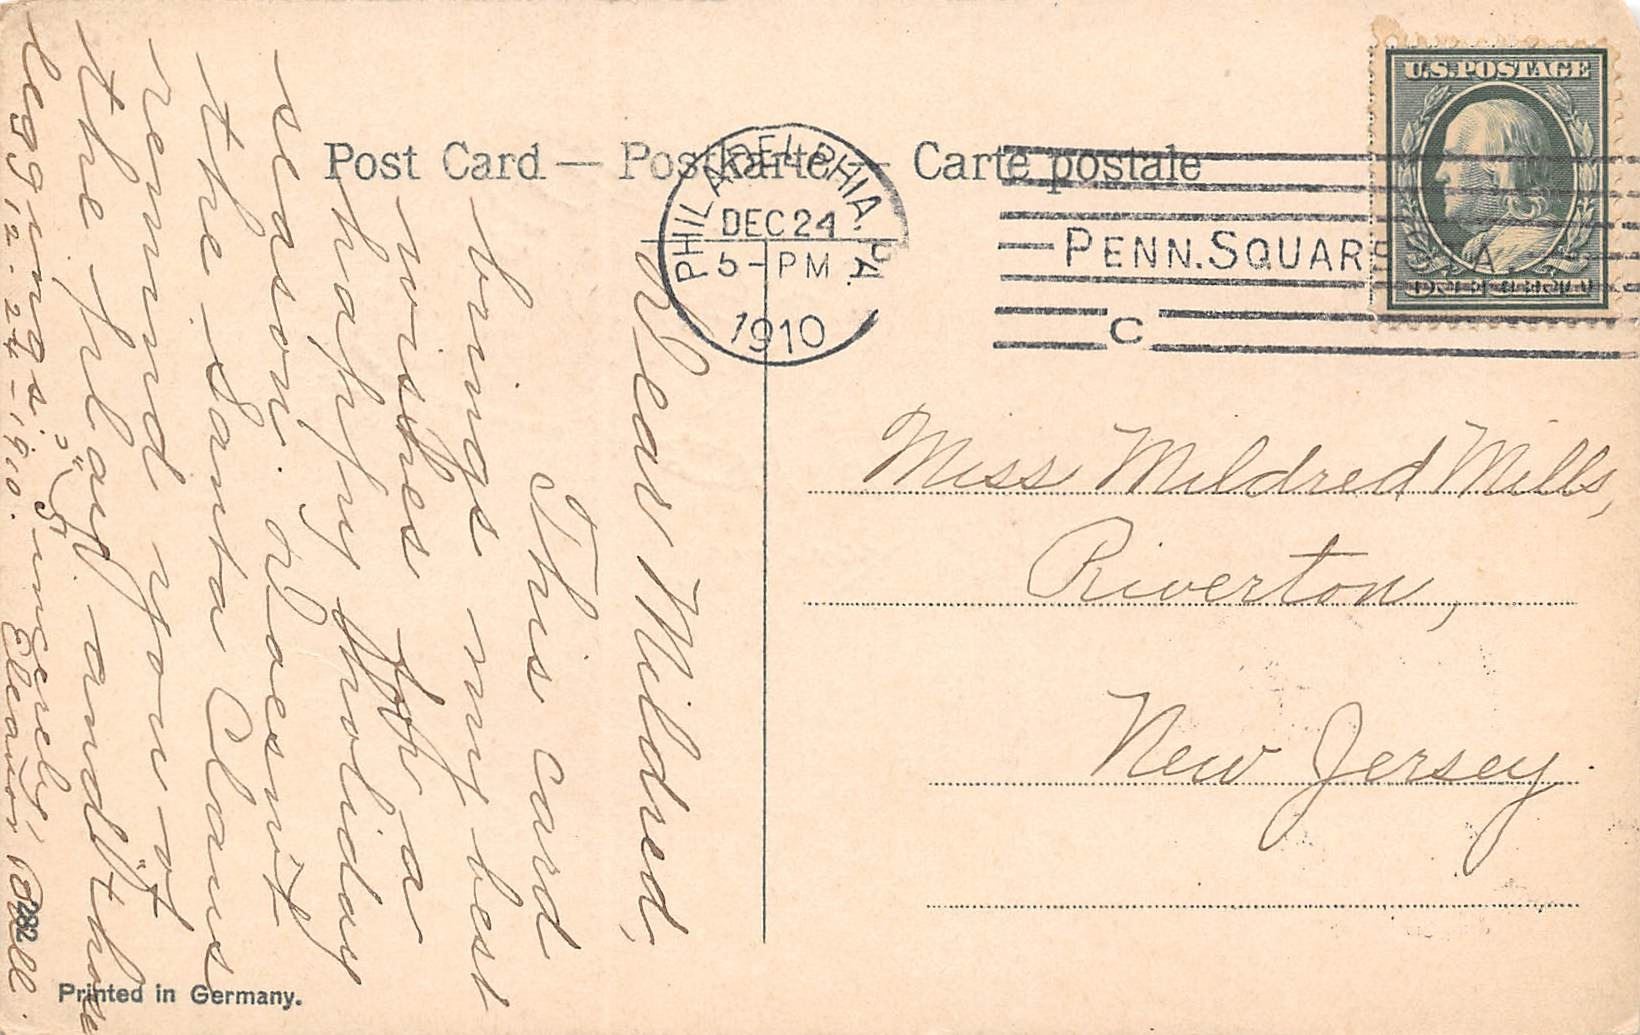 Post Card — Postkarte — Carte postale
PHILADELPHIA. PA.
DEC 24
5 - PM
1910
PENN. SQUARE STA.
C
U.S. POSTAGE
Miss Mildred Mills,
Riverton,
New Jersey.
Dear Mildred,
This card
brings my best
wishes for a
happy holiday
season. Doesn't
the Santa Claus
remind you of
the play and "those
leggings"?
Sincerely,
Eleanor
12-24-1910.
282
Printed in Germany.